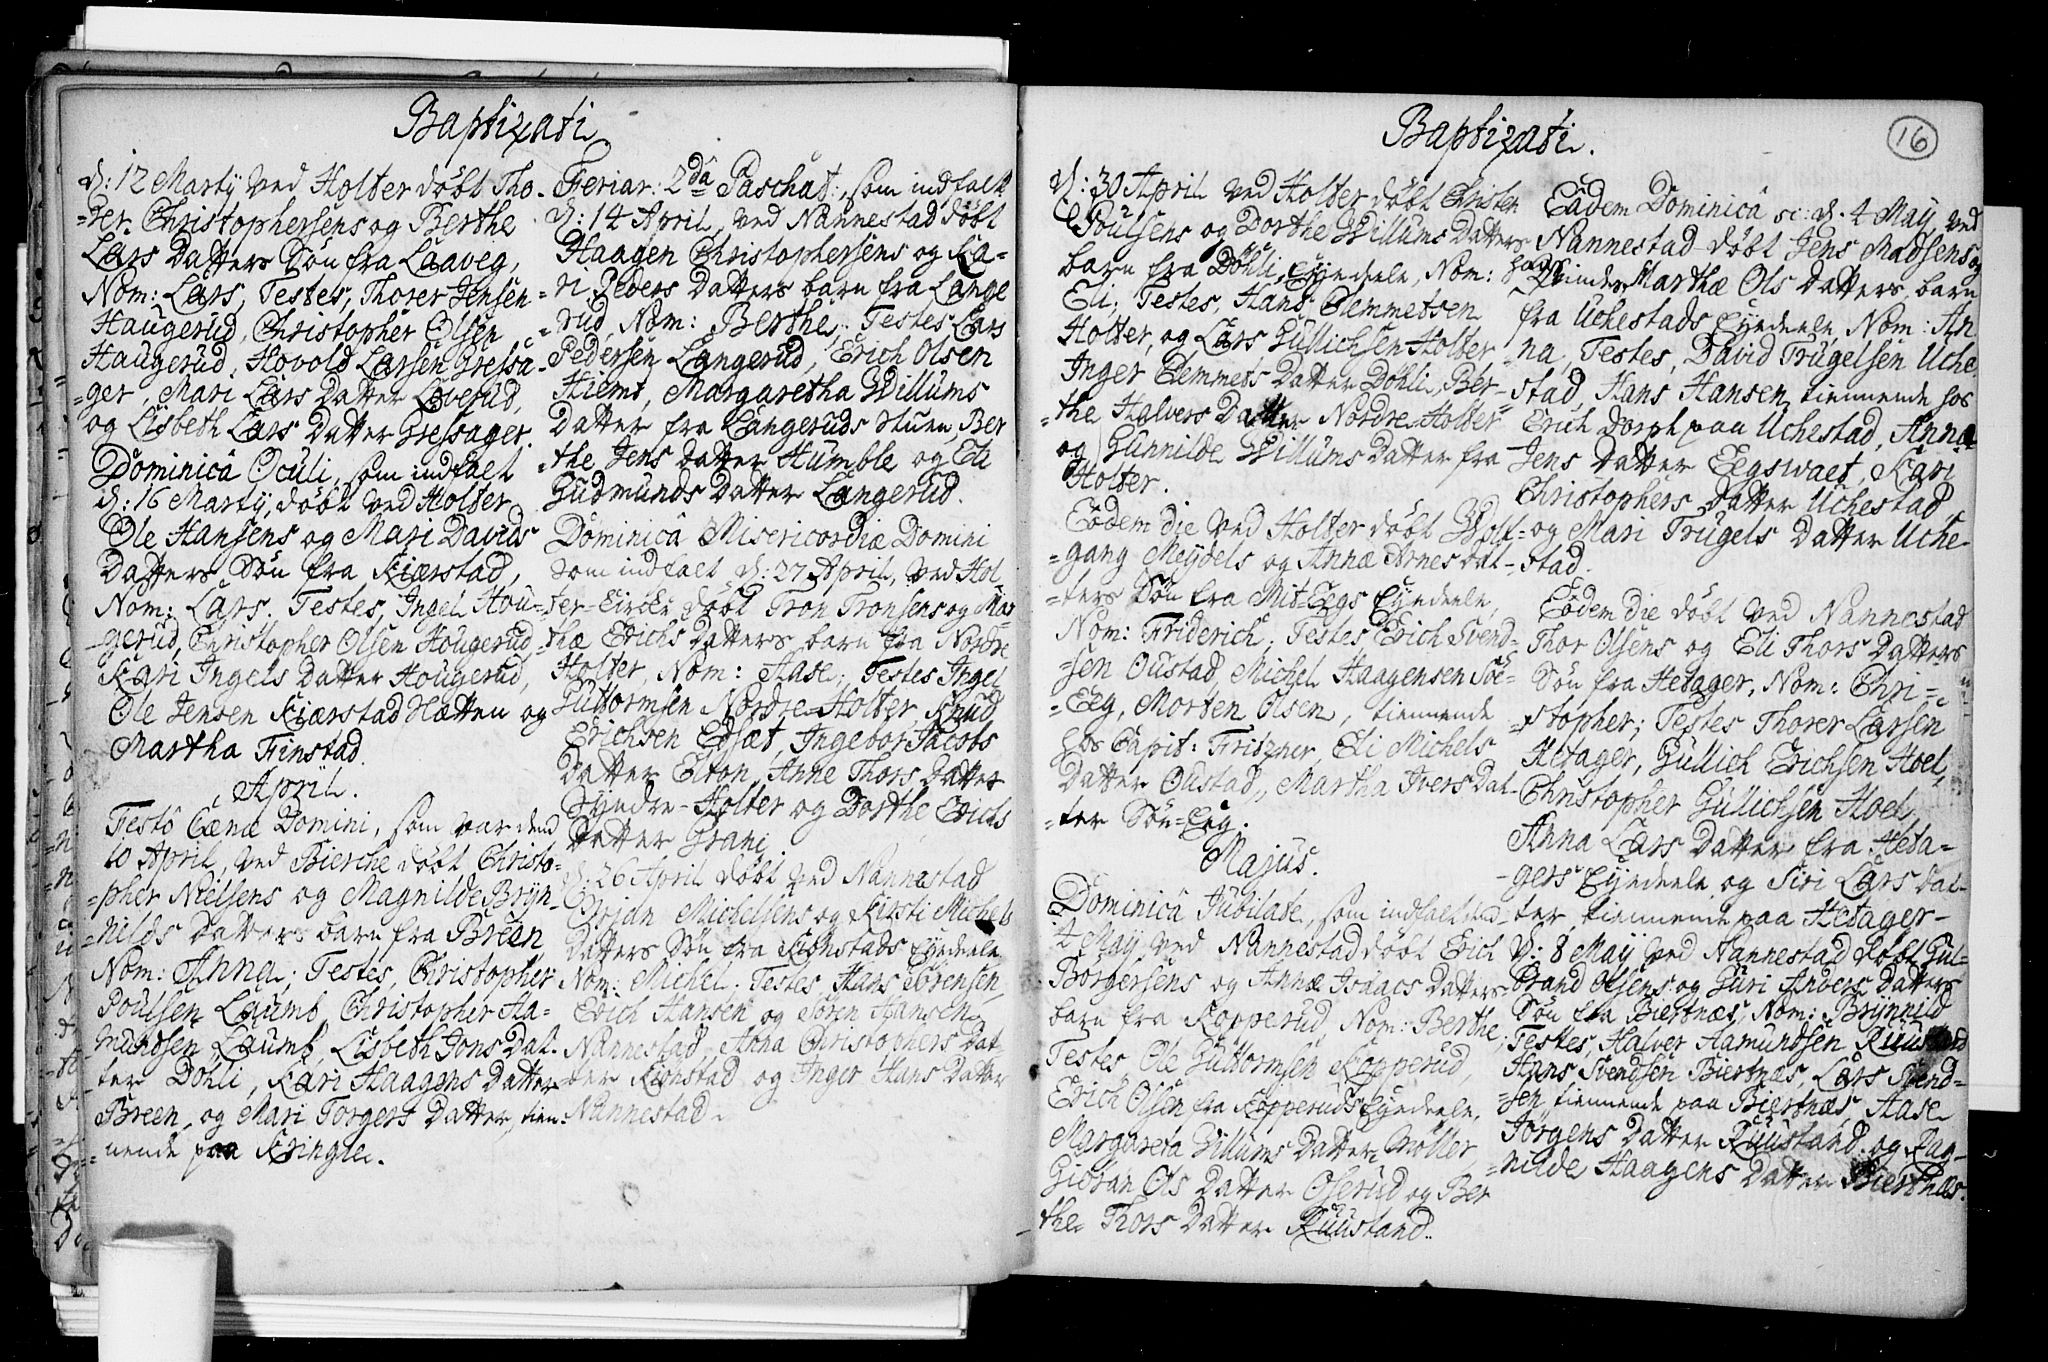 Baptizati
d: 12 Martÿ ved Holter döbt Tho-
=rer Christophersens og Berthe
Lars Datters Sön fra Laaveg,
Nom: Lars, Testes, Thorer Jensen
Haugerud, Christopher Olsen
Haugerud, Hovold Larsen Gressa-
=ger, Mari Lars Datter Lverud,
og Lisbeth Lars Datter Gressager.
Dominicâ Oculi, som indfalt
d: 16 Martÿ, döbt ved Holter
Ole Hansens og Mari Davids
Datters Sön fra Kiærstad,
Nom: Lars. Testes, Ingel Hou-
gerud, Christopher Olsen Hougerud,
Kari Ingels Datter Hougerud,
Ole Jensen Kiærstad Hætten og
Martha Finstad.
April.
Festô Cænæ Domini, som var dend
10 April, ved Bierche döbt Christo-
=pher Nielsens og Magnilde Bryn-
=nilds Datters barn fra Breen
Nom: Anna; Testes, Christopher
Poulsen Laumb, Christopher Ha-
mundsen Laumb, Lisbeth Jons Dat-
ter Döhli, Kari Haagens Datter
Breen, og Mari Torgers Datter, tien-
nende paa Kringle.
Feriar: 2dâ Paschat:, som indfalt
d: 14 April, ved Nannestad döbt
Haagen Christophersens og Ka-
=ri Peders Datters barn fra Lange
=rud, Nom: Berthe; Testes Lars
Pedersen Langerud, Erich Olsen
Hiemt, Margaretha Willums
Datter fra Langeruds Stuen, Ber
=the Jens Datter Humble og Eli
Gudmunds Datter Langerud.
Dominicâ Misericordiæ Domini
som indfalt d: 27 April, ved Hol-
ter-Kirke döbt Tron Tronsens og Mar
=thæ Erichs Datters barn fra Nordre
Holter, Nom: Aase; Testes Ingel
Guttormsen Nordre-Holter, Knud
Erichsen Edsæt, Ingebor Jacobs
Datter Elton, Anne Thors Datter
Syndre-Holter og Dorthe Erichs
Datter Grani
d: 26 April döbt ved Nannestad
Michelsens og Kirsti Michels
Datters Sön fra Kionstads Eyendeele
Nom: Michel; Testes, Hans Sörensen,
Erich Hansen og Sören Hansen
Nannestad, Anna Christophers Dat-
ter Kionstad og Inger Hans Datter
Nannestad.
Baptizati.
16
d: 30 April ved Holter döbt Christen
Poulsens og Dorthe Willums Datters
barn fra Döhli, Eyendeele, Nom:
Eli; Testes, Hans Clemmetsen
Holter, og Lars Gullichsen Holter
Inger Clemmets Datter Döhli, Ber-
=the Halvers Datter Nordre-Holter
og Gunnilde Willums Datter fra
Holter.
Eôdem die ved Holter döbt Wolf-
=gang Meydels og Annæ Arnes Dat-
=ters Sön fra Mit-Eegs Eyendeele,
Nom: Friderich; Testes Erich Svend-
=sen Oustad, Michel Haagensen Söe-
=Eeg, Morten Olsen, tiennende
hos Capit: Fritzner, Eli Michels
Datter Oustad, Martha Ivers Dat-
=ter Sön-Eeg.
Majus.
Dominicâ Jubilate, som indfalt dend
4 Maÿ ved Nannestad döbt Erich
Borgersens og Annæ Isaacs Datters
barn fra Kopperud, Nom: Berthe,
Testes, Ole Guttormsen Kopperud,
Erich Olsen fra Kopperuds Eyendeele,
Margareta Willums Datter Möller
Giöran Ols Datter Oserud og Ber
the Thors Datter Ruustand.
Eâdem Dominicâ sc: d. 4 Maÿ ved
Nannestad döbt Jens Madsens og
hans Qvindes Marthæ Ols Datters barn
fra Uchestads Eyendeele, Nom: An
=na, Testes, David Trugelsen Uche
stad, Hans Hansen, tiennende hos
Erich Dorph paa Uchestad, Anna
Jens Datter Eegswaet, Kari
Christophers Datter Uchestad,
og Mari Trugels Datter Uche-
stad.
Eôdem die döbt ved Nannestad
Thor Olsens og Eli Thors Datters
Sön fra Hetager, Nom: Chri-
=stopher; Testes Thorer Larsen
Hetager, Gullich Erichsen Hoel,
Christopher Gullichsen Hoel,
Anna Lars Datter fra Heta-
gers Eyendeele og Siri Lars Dat-
ter, tiennende paa Hetager-
d: 8 Maÿ ved Nannestad döbt Gul-
brand Olsens og Guri Anvers Datters
Sön fra Biertnæs, Nom: Brÿnnild
Testes, Halver Hamundsen Ruustand
Hans Svendsen Biertnæs, Lars Svend-
sen, tiennende paa Biertnæs, Aase
Jörgens Datter Ruustand og Rag-
=nilde Haagens Datter Biertnæs.